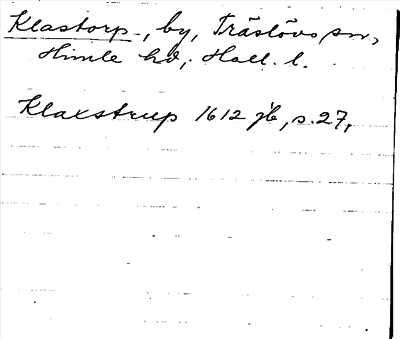 Klastorp, by, Träslövs sn,
Himle hd, Hall. l.
Klaxstrup 1612 jb, s. 27,